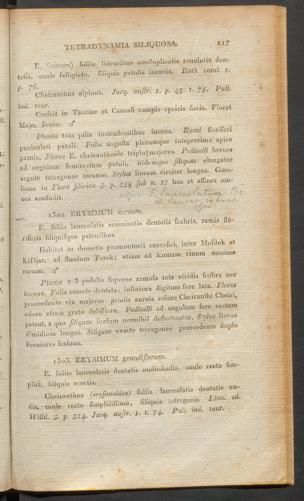 TETRADYNAMIA SILIQUOSA. 117
E. foliis linearibus conduplicatis remotis den-
tatis, caule fastigiato, siliquis patulis incanis. Roth catal. 1.
p. 76.
Cheiranthus alpinus. Jacq. austr. 1. p. 48. t. 75. Pall.
ind. taur.
Crescit in Tauriae et Caucasi campis apricis siccis. Floret
Majo, Junio. ♂
Planta tota pilis incumbentibus incana. Rami floriferi
paniculati patuli. Folia angusta plerumque integerrima apice
patula. Flores E. cheiranthoide triplo majores. Pedicelli breves
ad angulum semirectum patuli, itidemque siliquae elongatae
argute tetragonae incanae. Stylus linearis circiter longus. Gme-
linus in Flora sibirica 3. p. 254 sub n. 17 hoc et affines om-
nes confudit.
E. lanceolatum
1302. ERYSIMUM aureum.
E. foliis lanceolatis acuminatis dentatis scabris, ramis flo-
riferis siliquisque patentibus.
Habitat in dumetis promontorii caucasici, inter Mosdok et
Kisljar, ad fluvium Terek; etiam ad Kumam rivum minime
rarum. ♂
Planta 2-3-pedalis superne ramosa tota viridis scabra nec
incana. Folia remote dentata: inferiora digitum fere lata. Flores
praecedente vix majores: petalis aureis colore Cheiranthi Cheiri,
odore etiam grato debiliore. Pedicelli ad angulum fere rectum
patent, a quo siliquae sursum nonnihil deflectuntur. Stylus lineae
dimidium longus. Siliquae exacte tetragonae praecedente duplo
breviores scabrae.
1303. ERYSIMUM grandiflorum.
E. foliis lanceolatis dentatis nudiusculis, caule recto sim-
plici, siliquis erectis.
Cheiranthus (erysimoides) foliis lanceolatis dentatis nu-
dis, caule recto simplicissimo, siliquis tetragonis Linn. ed.
Willd. 3. p. 514. Jacq. austr. 1. t. 74. Pall. ind. taur.